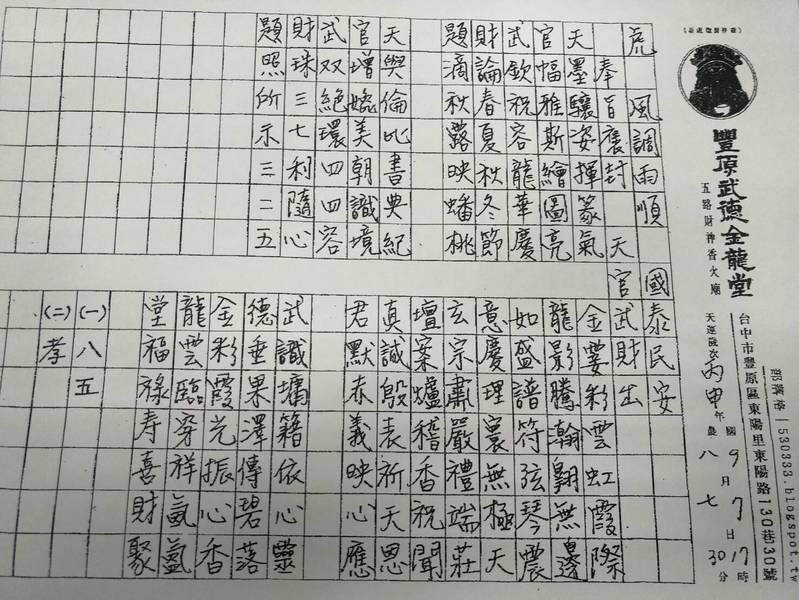 部落格 1530333.blogspot.tw
台中市豐原區東陽里東陽路130巷30號
天運歲次丙申年 國9月7日17時
農八七30分
豐原武德金龍堂
五路財神香火廟
虎 風調雨順 國泰民安
奉旨褒封 天官武財出
天墨驤姿揮篆氣
官幅雅斯繪圖亮
武欽祝容龍華慶
財論春夏秋冬節
題滴秋露映蟠桃
天與倫比書典紀
官增嬌美朝識境
武双絕環四四容
財珠三七利隨心
題照所示三二五
金彩雲虹霞際
龍影騰瀚翱無邊
如盛譜符弦琴震
意慶理寰無極天
玄宗肅嚴禮端莊
壇案爐稽香祝聞
真誠殷衷祈天思
君默赤義映心應
武識墉籍依心靈
德垂果澤傳碧落
金彩霞光振心香
龍雲臨穿祥氤氳
堂福祿寿喜財聚
(一)八五
(二)孝